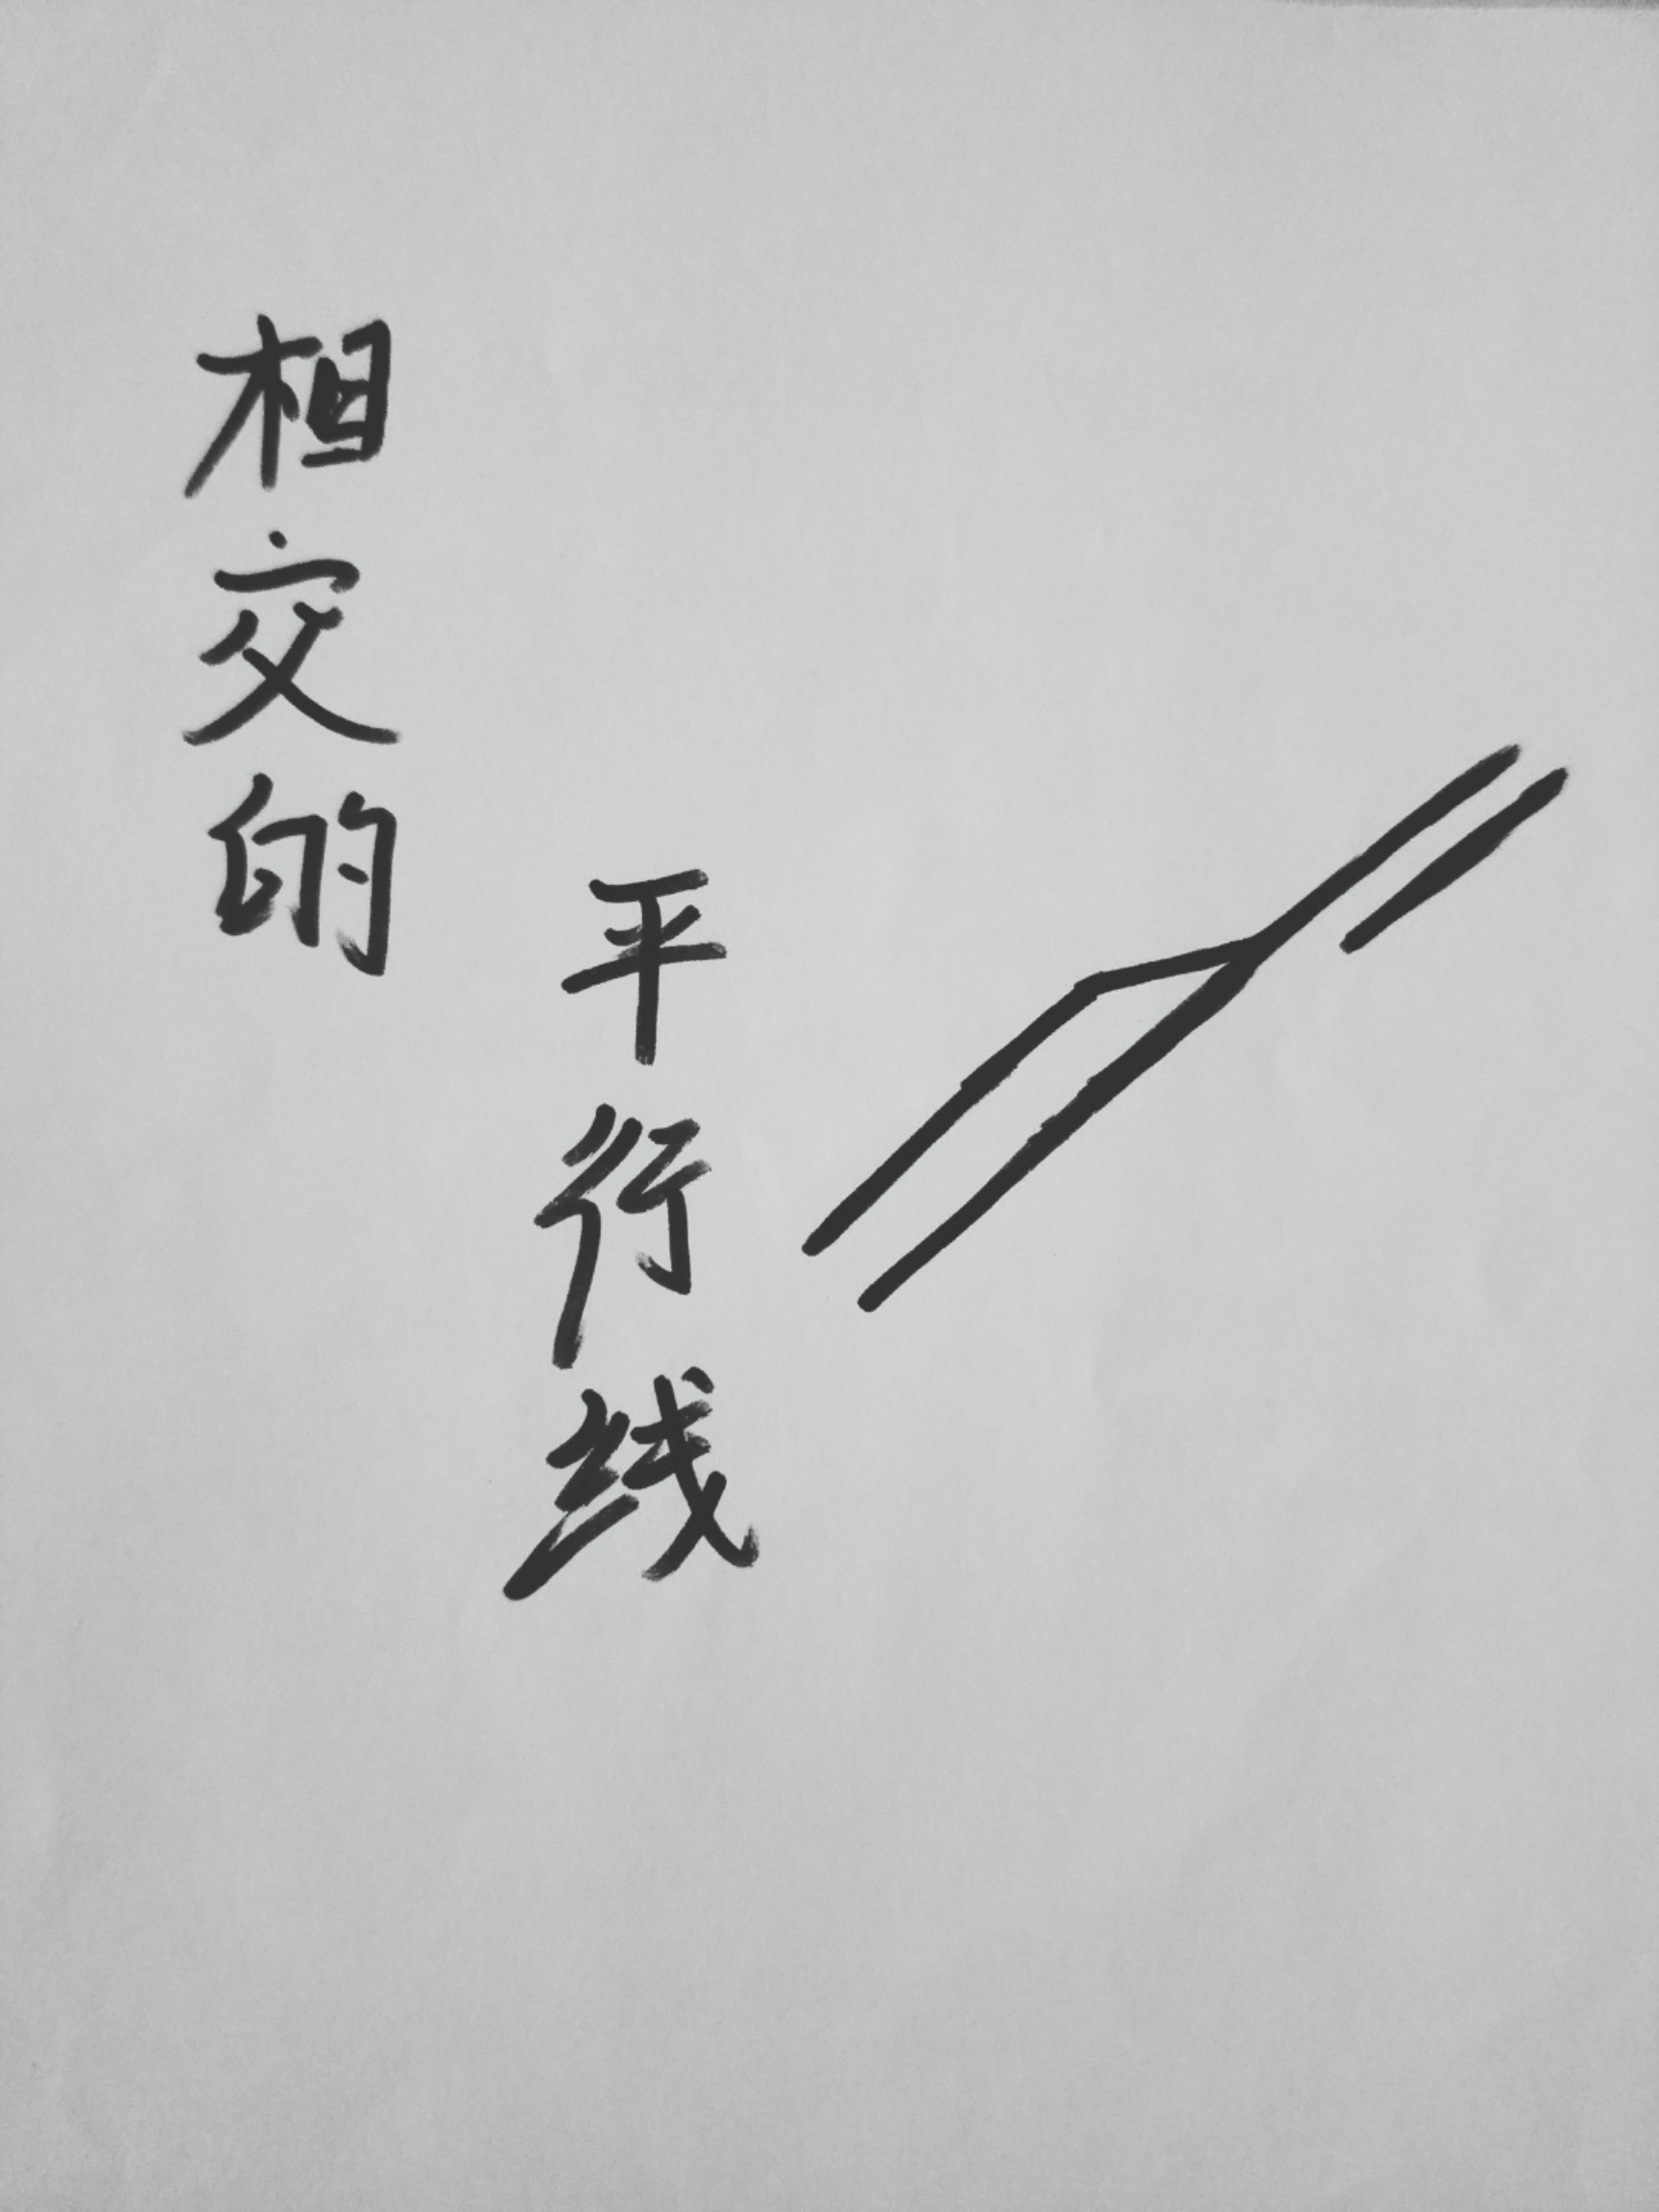 相交的
平行线